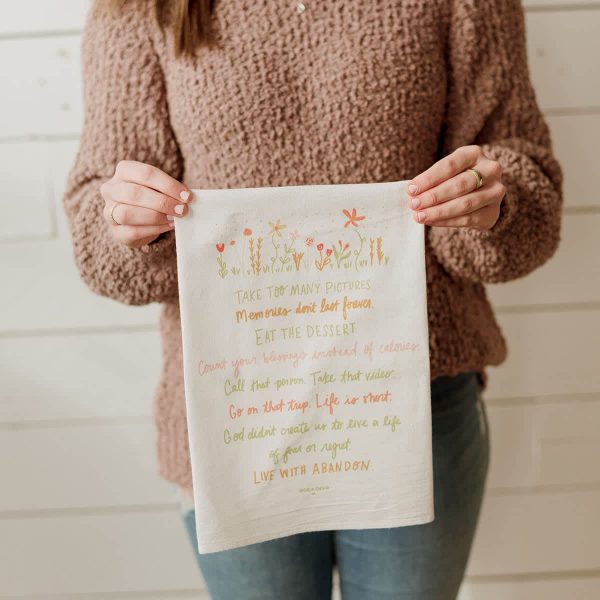 TAKE TOO MANY PICTURES
Memories don't last forever.
EAT THE DESSERT
Count your blessings instead of calories.
Call that person. Take that video.
Go on that trip. Life is short.
God didn't create us to live a life
of fear or regret.
LIVE WITH ABANDON.